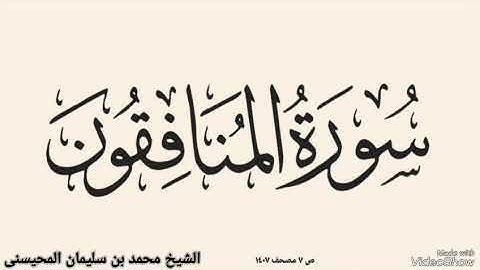 سُورَةُ المُنَافِقُونَ
ص ٧ مصحف ١٤٠٧
الشيخ محمد بن سليمان المحيسنى
Made with
VideoShow